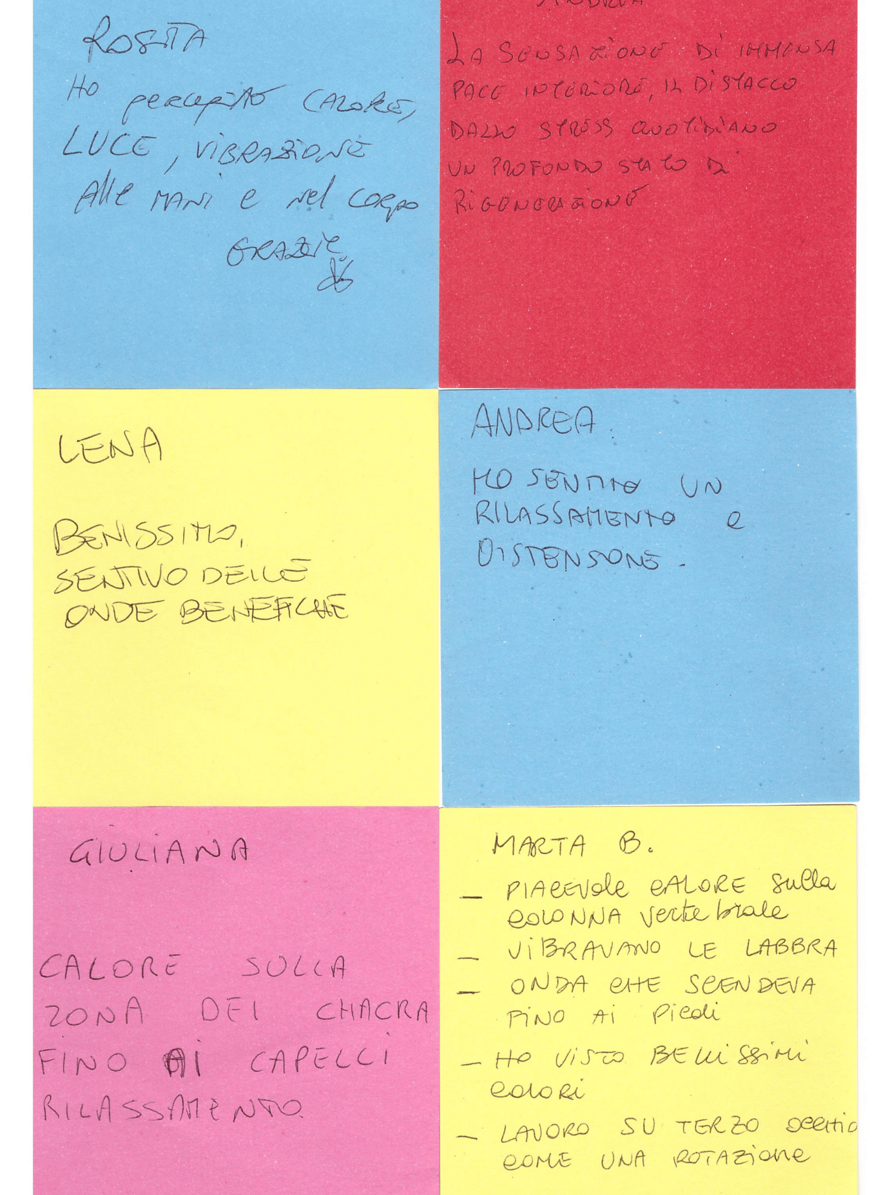 ROSITA
HO percepito CALORE,
LUCE, VIBRAZIONE
Alle MANI e nel corpo
GRAZIE
LA SENSAZIONE DI IMMENSA
PACE INTERIORE, IL DISTACCO
DALLO STRESS QUOTIDIANO
UN PROFONDO STATO DI
RIGENERAZIONE
LENA
BENISSIMO,
SENTIVO DELLE
ONDE BENEFICHE
ANDREA.
HO SENTITO UN
RILASSAMENTO e
DISTENSIONE.
GIULIANA
CALORE SULLA
ZONA DEI CHACRA
FINO AI CAPELLI
RILASSAMENTO
MARTA B.
– PIACEVOLE CALORE sulla
COLONNA vertebrale
– VIBRAVANO LE LABBRA
– ONDA CHE SCENDEVA
FINO AI Piedi
– HO VISTO BELLISSIMI
COLORI
– LAVORO SU TERZO occhio
COME UNA ROTAZIONE